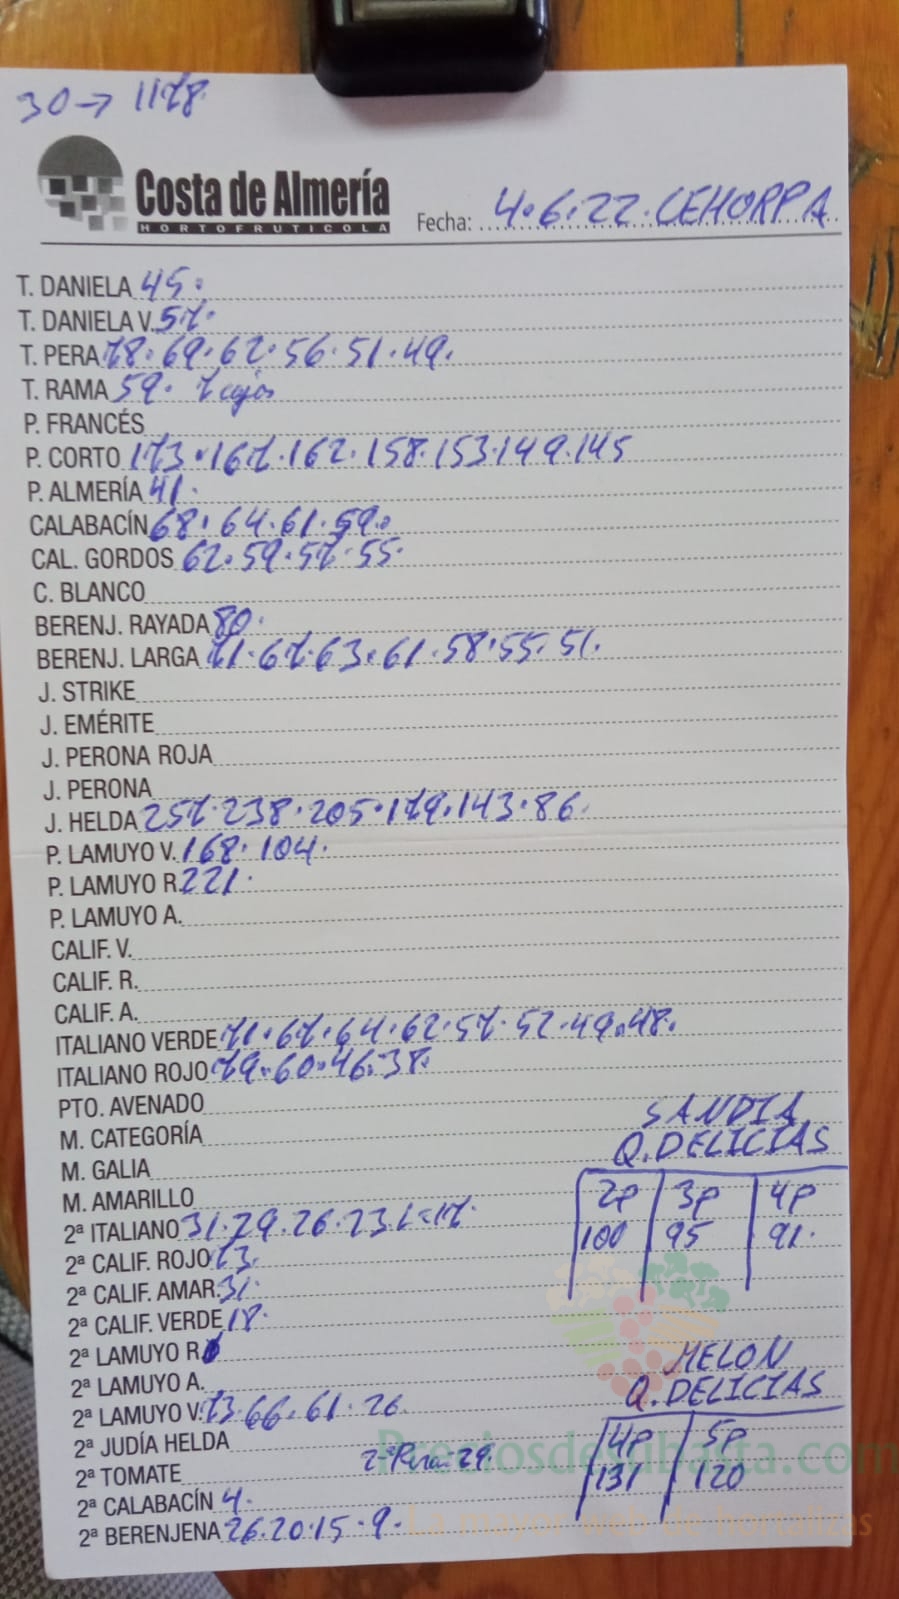 30→ 1178.
Costa de Almería
HORTOFRUTICOLA
Fecha: 4.6.22. CEHORPA
T. DANIELA 45.
T. DANIELA V. 57.
T. PERA 78.69.62.56.51.49.
T. RAMA 59. 7 cajas
P. FRANCÉS
P. CORTO 173.167.162.158.153.149.145
P. ALMERÍA 41.
CALABACÍN 68.64.61.59.
CAL. GORDOS 62.59.57.55.
C. BLANCO
BERENJ. RAYADA 80.
BERENJ. LARGA 71.67.63.61.58.55.51.
J. STRIKE
J. EMÉRITE
J. PERONA ROJA
J. PERONA
J. HELDA 257.238.205.179.143.86.
P. LAMUYO V. 168.104.
P. LAMUYO R. 221.
P. LAMUYO A.
CALIF. V.
CALIF. R.
CALIF. A.
ITALIANO VERDE 71.67.64.62.57.52.49.48.
ITALIANO ROJO 79.60.46.38.
PTO. AVENADO
M. CATEGORÍA
M. GALIA
M. AMARILLO
SANDIA
Q. DELICIAS
2P 3P 4P
100 95 91.
2ª ITALIANO 31.29.26.23 L=17.
2ª CALIF. ROJO 73.
2ª CALIF. AMAR. 31.
2ª CALIF. VERDE 18.
2ª LAMUYO R.
2ª LAMUYO A.
2ª LAMUYO V. 73.66.61.26.
2ª JUDÍA HELDA
2ª TOMATE 2ª Pera: 29.
2ª CALABACÍN 4.
2ª BERENJENA 26.20.15.9.
MELON
Q. DELICIAS
4P 5P
131 120
Preciosdesubasta.com
La mayor web de hortalizas